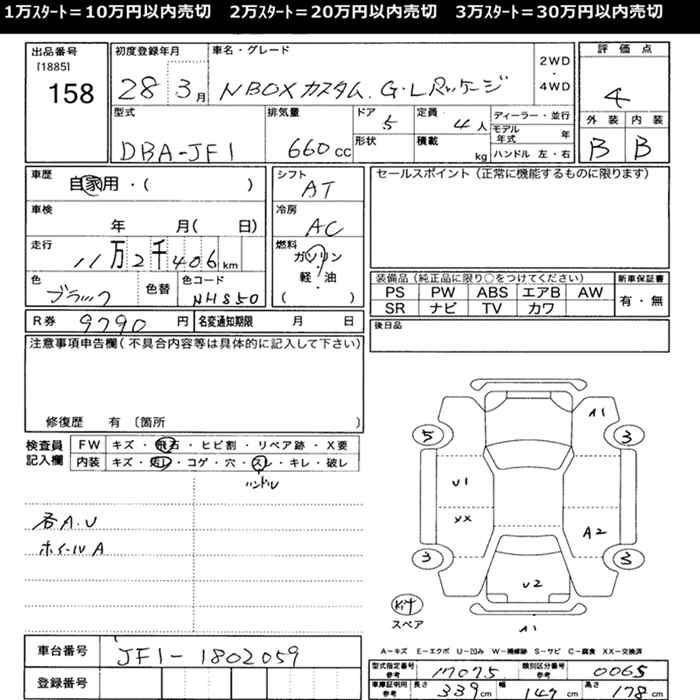 1万ｽﾀｰﾄ＝10万円以内売切　2万ｽﾀｰﾄ＝20万円以内売切　3万ｽﾀｰﾄ＝30万円以内売切
出品番号 初度登録年月 車名・グレード 評価点
[1885]
158
28 3月 NBOXカスタム G・Lパッケージ
2WD
・
4WD
4
型式 排気量 ドア 5 定員 4人 ディーラー・並行 外装 内装
モデル年式 年
DBA-JF1 660cc 形状 積載 kg ハンドル 左・右 B B
車歴 自家用・( ) シフト AT セールスポイント（正常に機能するものに限ります）
車検 年 月( 日) 冷房 AC
走行 11万2千406km 燃料 ガソリン
・
軽・油
( )
色 ブラック 色替 色コード NH850
装備品（純正品に限り○をつけてください） 新車保証書
PS PW ABS エアB AW 有・無
SR ナビ TV カワ
R券 9790円 名変通知期限 月 日 後日品
注意事項申告欄（不具合内容等は具体的に記入して下さい）
修復歴 有〔箇所 〕
検査員記入欄 FW キズ・飛石・ヒビ割・リペア跡・X要
内装 キズ・汚レ・コゲ・穴・スレ・キレ・破レ
ハンドル
各A.U
ホイールA
A1
5 3
U1
XX A2
3 3
U2
スペア
A1
A－キズ E－エクボ U－凹み W－補修跡 S－サビ C－腐食 XX－交換済
車台番号 JF1-1802059
登録番号
型式指定番号 参考 17075 類別区分番号 参考 0065
車庫証明用 参考 長さ 339cm 幅 147cm 高さ 178cm